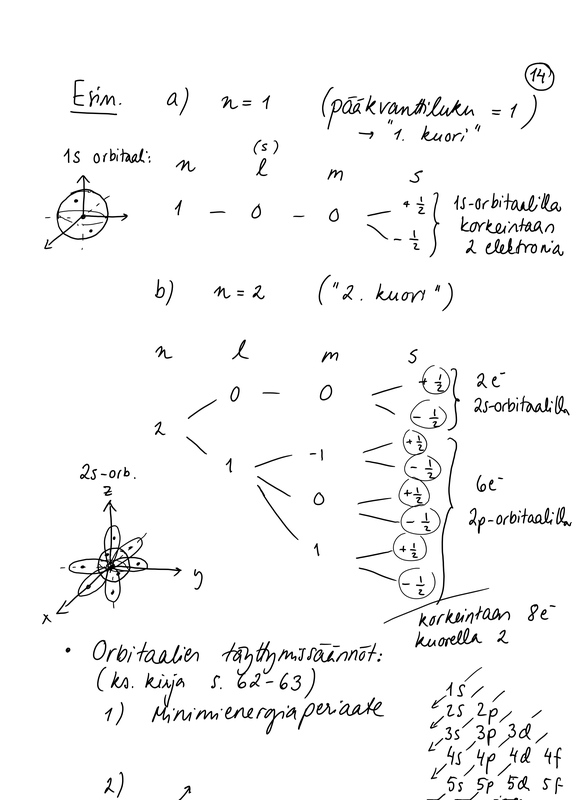 14
Esim. a) n = 1 (pääkvanttiluku = 1)
→ "1. kuori"
1s orbitaali:
(s)
n l m s
1 – 0 – 0 +½ -½
1s-orbitaalilla
korkeintaan
2 elektronia
b) n = 2 ("2. kuori")
n l m s
0 – 0 +½ -½
2e⁻
2s-orbitaalilla
2
1 -1 +½ -½
0 +½ -½
1 +½ -½
6e⁻
2p-orbitaalilla
2s-orb.
z
y
x
korkeintaan 8e⁻
kuorella 2
• Orbitaalien täyttymissäännöt:
(ks. kirja s. 62-63)
1) Minimienergiaperiaate
1s
2s 2p
3s 3p 3d
4s 4p 4d 4f
5s 5p 5d 5f
2)